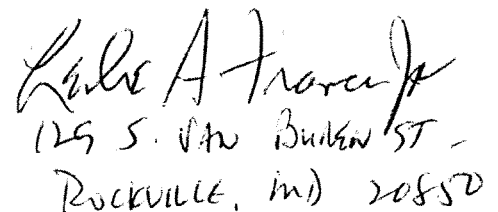 Leslie A Francis Jr
129 S. VAN BUREN ST.
ROCKVILLE, MD 20850